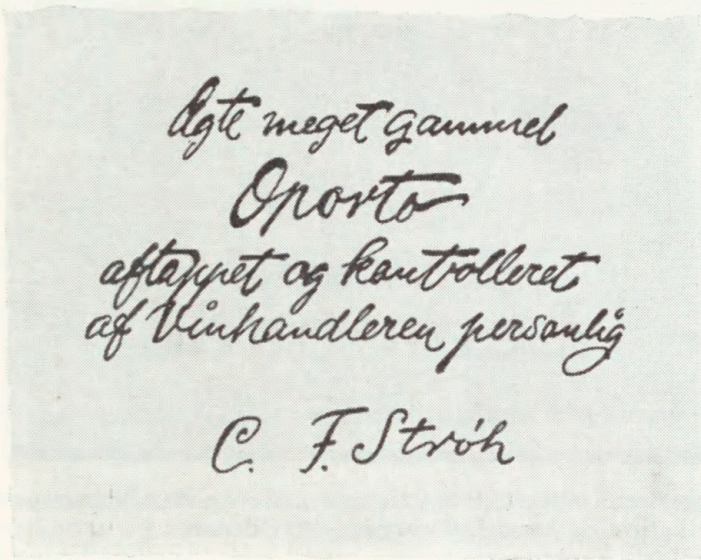 Ægte meget gammel
Oporto
aftappet og kontrolleret
af Vinhandleren personlig
C. F. Strøh